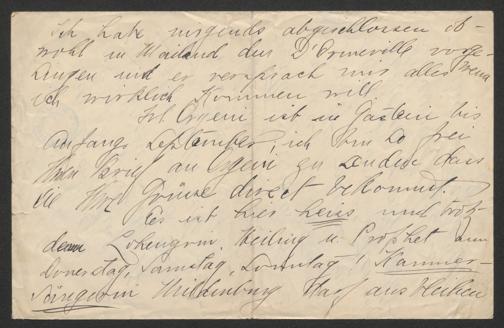 Ich habe nirgends abgeschlossen ob-
wohl in Mailand der D'Ormeville vorge-
und er versprach mir alles wenn
ich wirklich kommen will
Orgeni ist in Gastein bis
Anfangs September, ich bin so frei
Ihren Brief an Orgeni zu senden dass
sie Ihre Grüsse direct bekommt.
Es ist hier heiss und trotz-
dem Lohengrin, Heiling u. Prophet am
Donerstag, Samstag, Sonntag! Kammer-
Sängerin Mildenburg darf ausbleiben